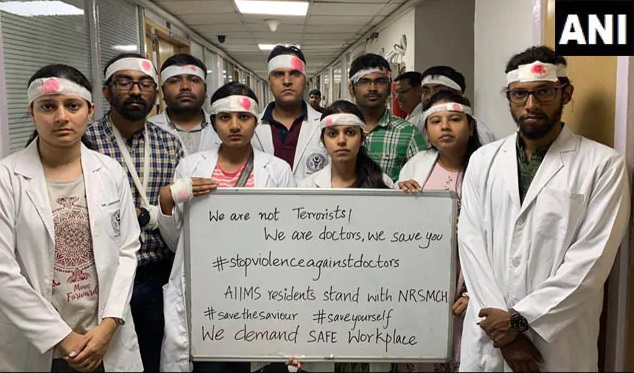 ANI
We are not Terrorists!
We are doctors, we save you
#stopviolenceagainstdoctors
AIIMS residents stand with NRSMCH
#savethesaviour #saveyourself
We demand SAFE Workplace
Move
Forward